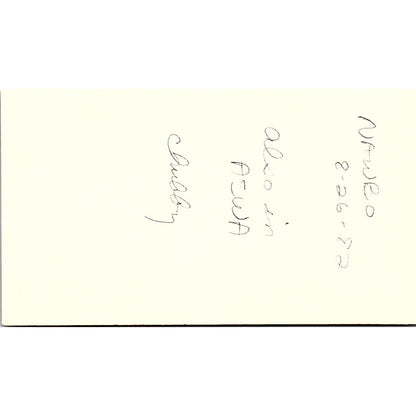 NAWBO
8-26-92
also in
ASWA
Chubby